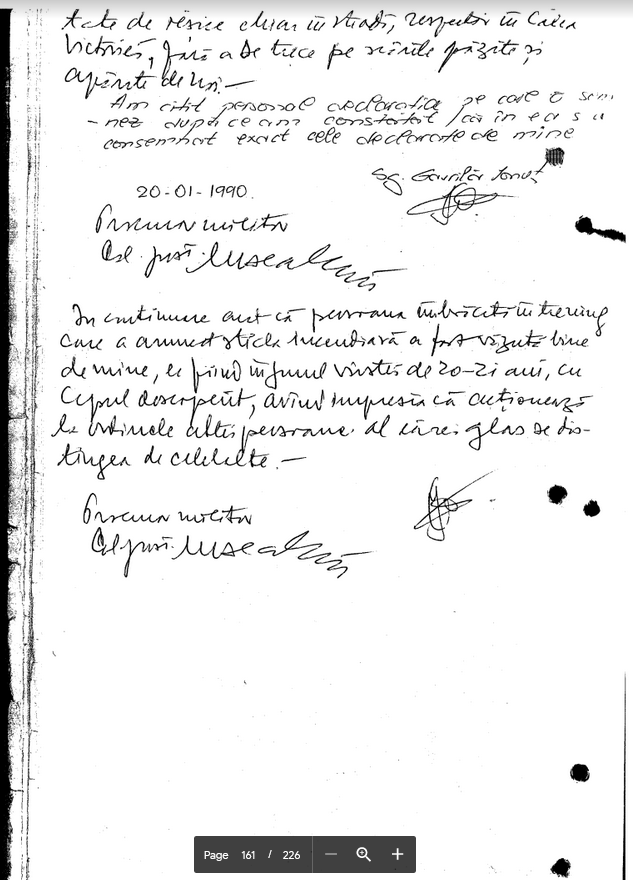 de chiar în stradă, respectiv în Calea
Victoriei, fără a se trece pe păzite și
apărate de noi.—
Am citit personal declarația pe care o sem
-nez după ce am constatat că în ea s a
consemnat exact cele declarate de mine
Sg. Gavrilă Ionuț
20-01-1990.
Procuror militar
Col. just.
În continuare arăt că persoana îmbrăcată în trening
care a aruncat sticla incendiară a fost văzută bine
de mine, ea fiind în jurul vârstei de 20-21 ani, cu
capul descoperit, având impresia că acționează
la ordinele altei persoane al cărei glas se dis-
tingea de celelalte.—
Procuror militar
Col. just.
Page 161 / 226